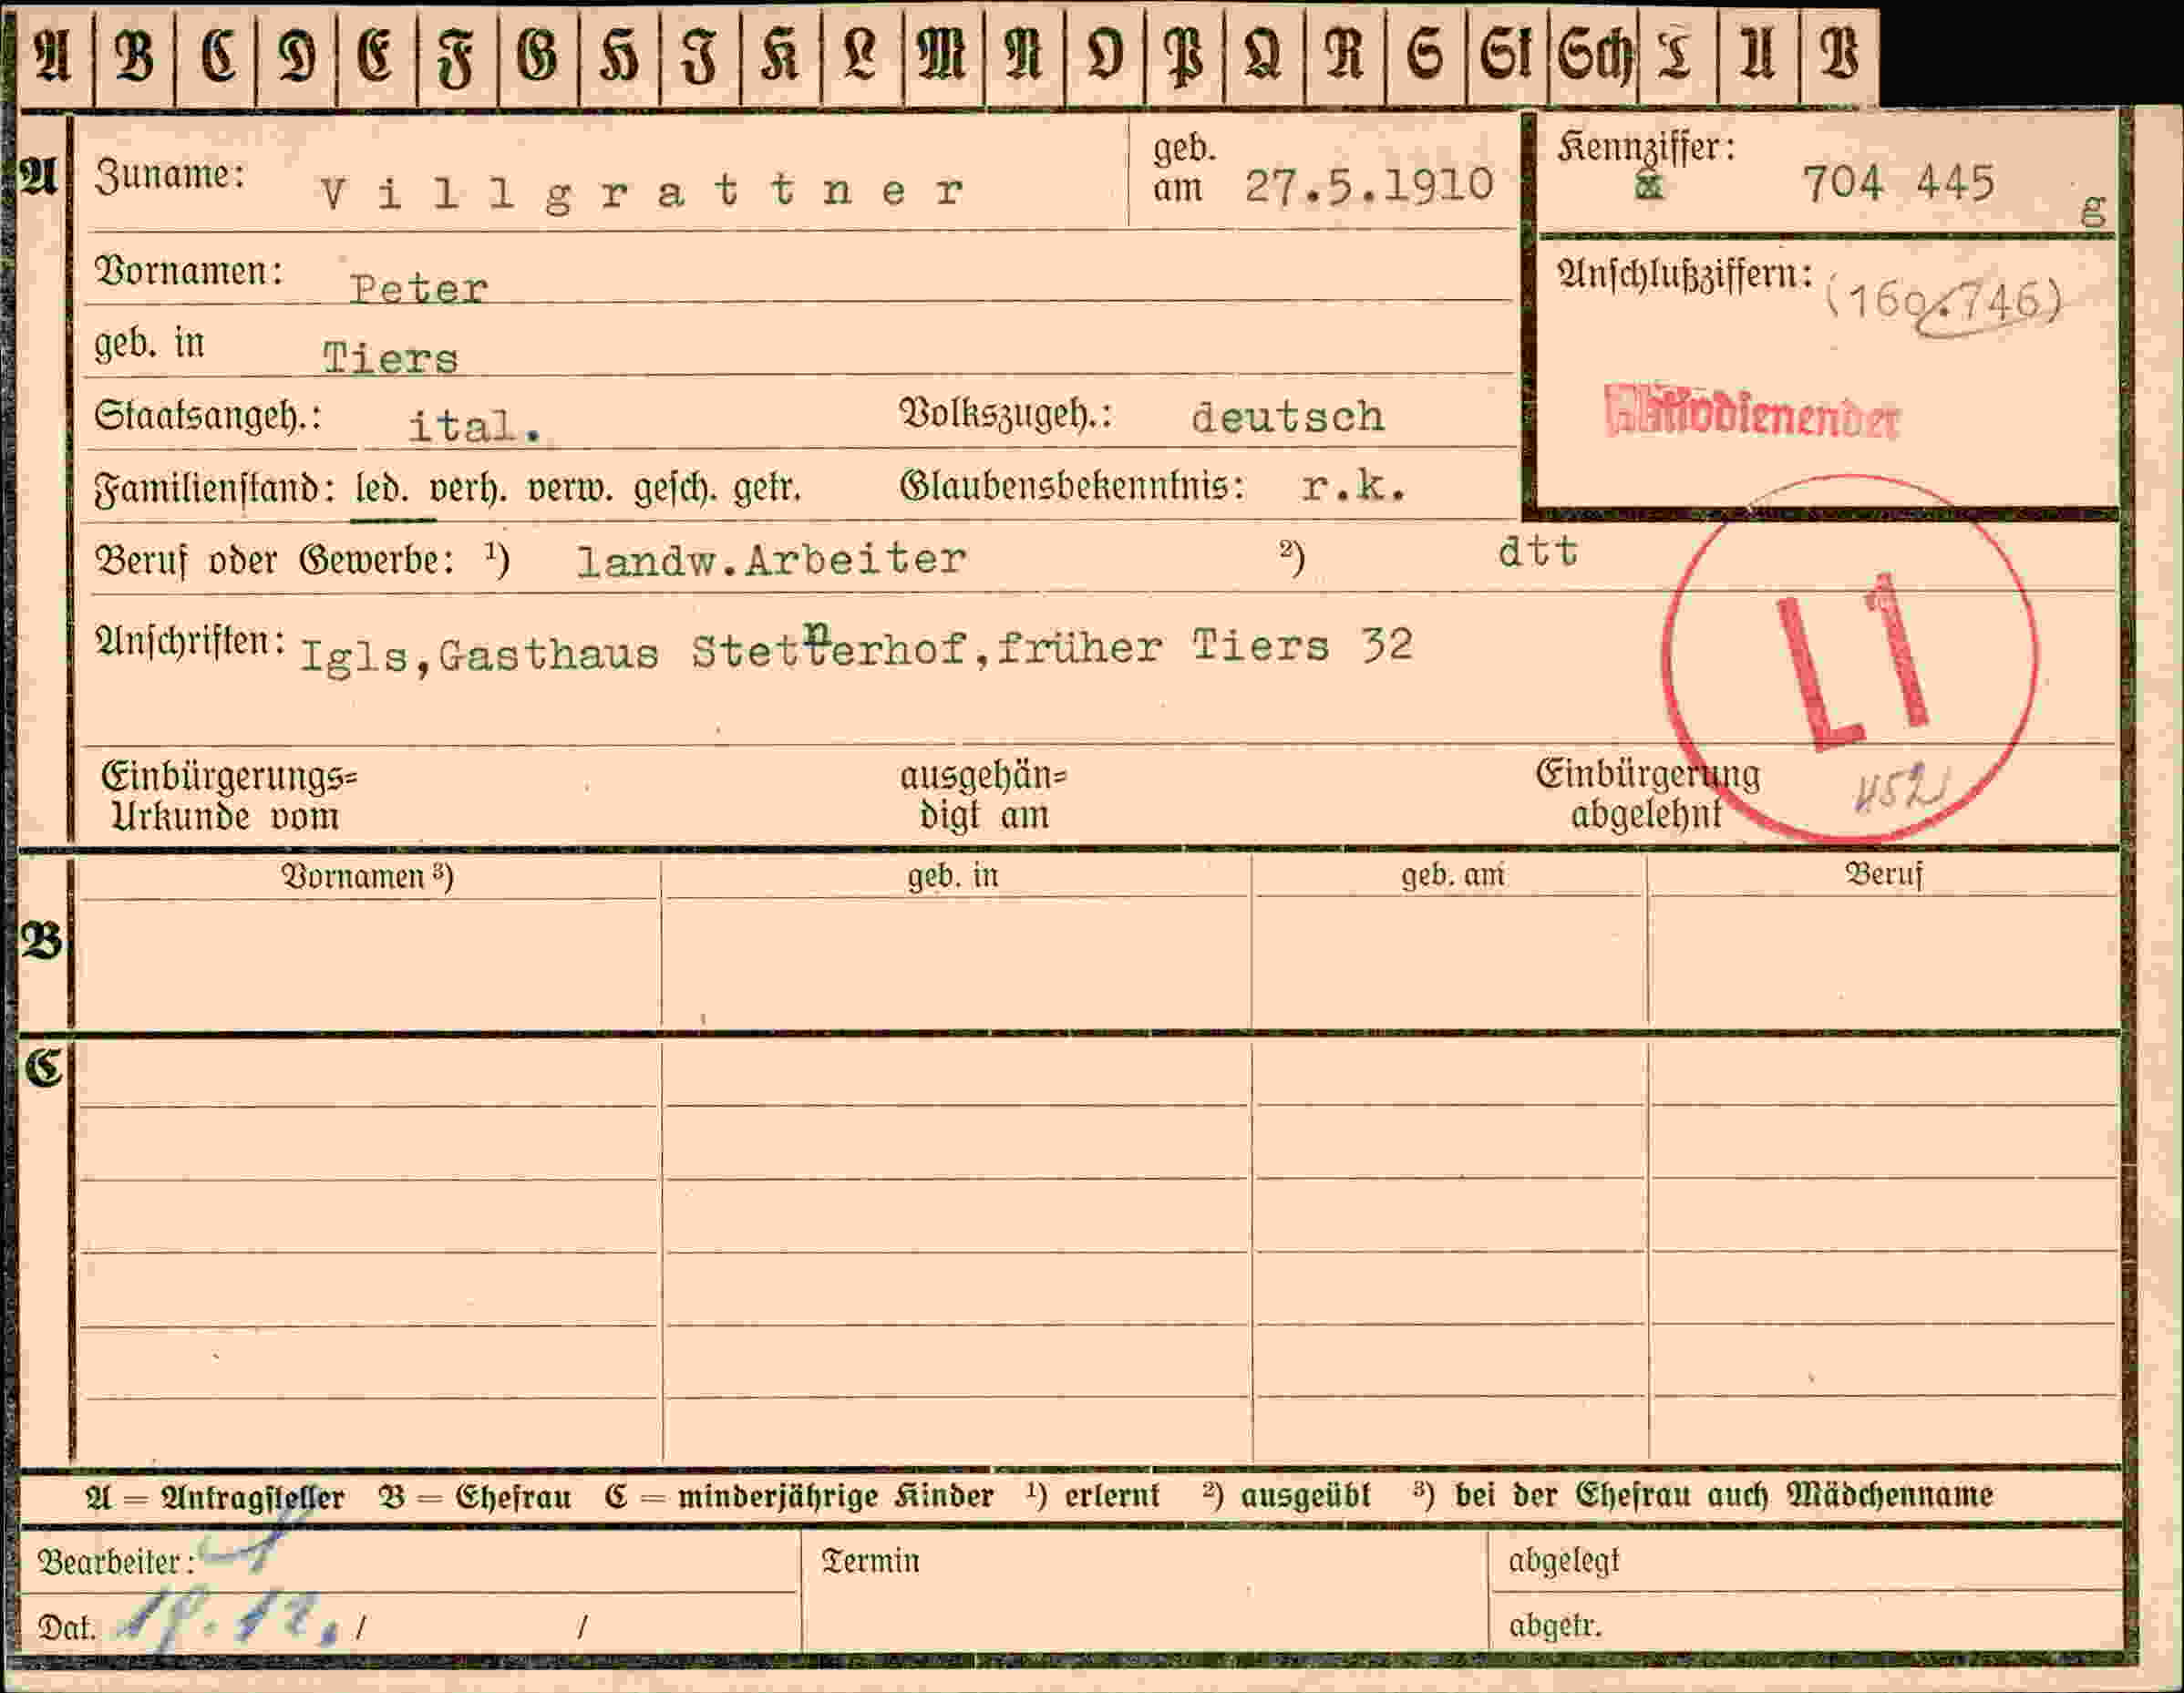 A B C D E F G H I K L M N O P Q R S St Sch T U V
A Zuname: Villgrattner geb. am 27.5.1910 Kennziffer: 704 445 g
Vornamen: Peter Anschlußziffern: (160.746)
geb. in Tiers
Staatsangeh.: ital. Volkszugeh.: deutsch
Familienstand: led. verh. verw. gesch. getr. Glaubensbekenntnis: r.k.
Beruf oder Gewerbe: ¹) landw.Arbeiter ²) dtt
L1
Anschriften: Igls,Gasthaus Stettnerhof,früher Tiers 32
Einbürgerungs= Urkunde vom ausgehän= digt am Einbürgerung abgelehnt 452
Vornamen ³) geb. in geb. am Beruf
B
C
A = Antragsteller B = Ehefrau C = minderjährige Kinder ¹) erlernt ²) ausgeübt ³) bei der Ehefrau auch Mädchenname
Bearbeiter: Termin abgelegt
Dat. 19.12. / / abgetr.